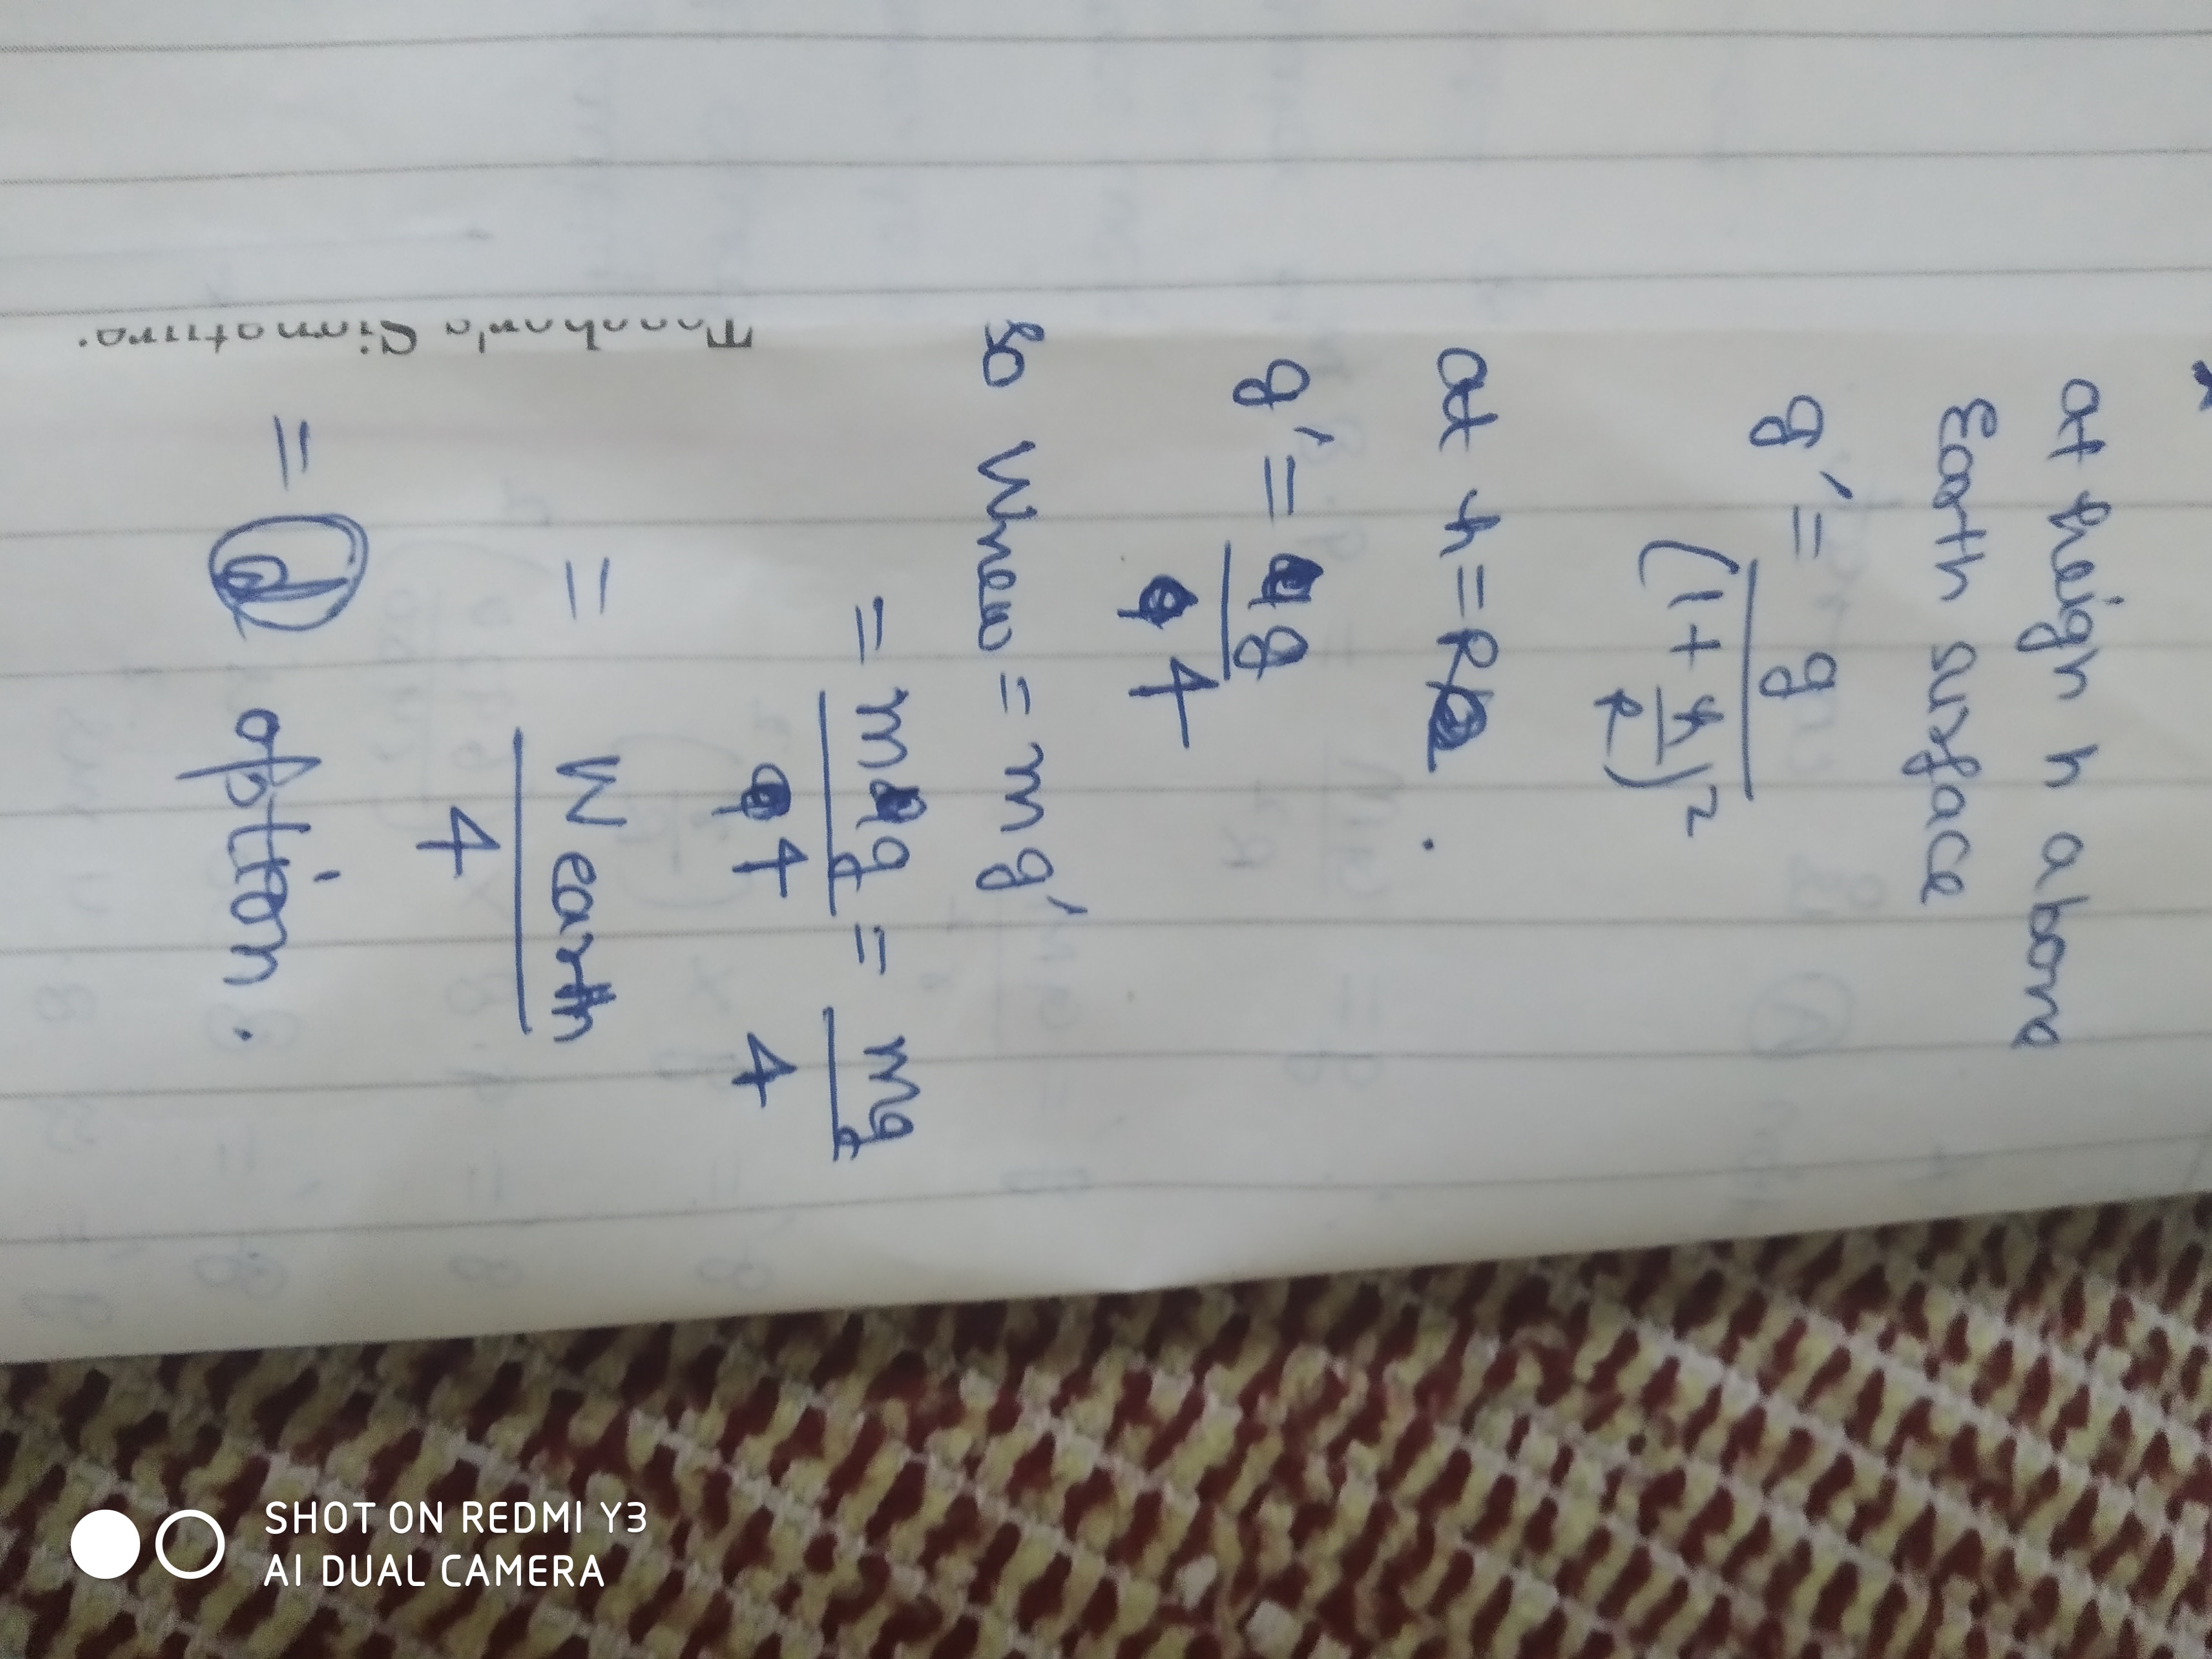 at heigh h above
Earth surface
g' = g / (1 + h/R)²
at h = R .
g' = g / 4
so Wnew = mg'
= mg / 4 = mg / 4
= W earth / 4
= d option .
Teacher's Signature:
SHOT ON REDMI Y3
AI DUAL CAMERA